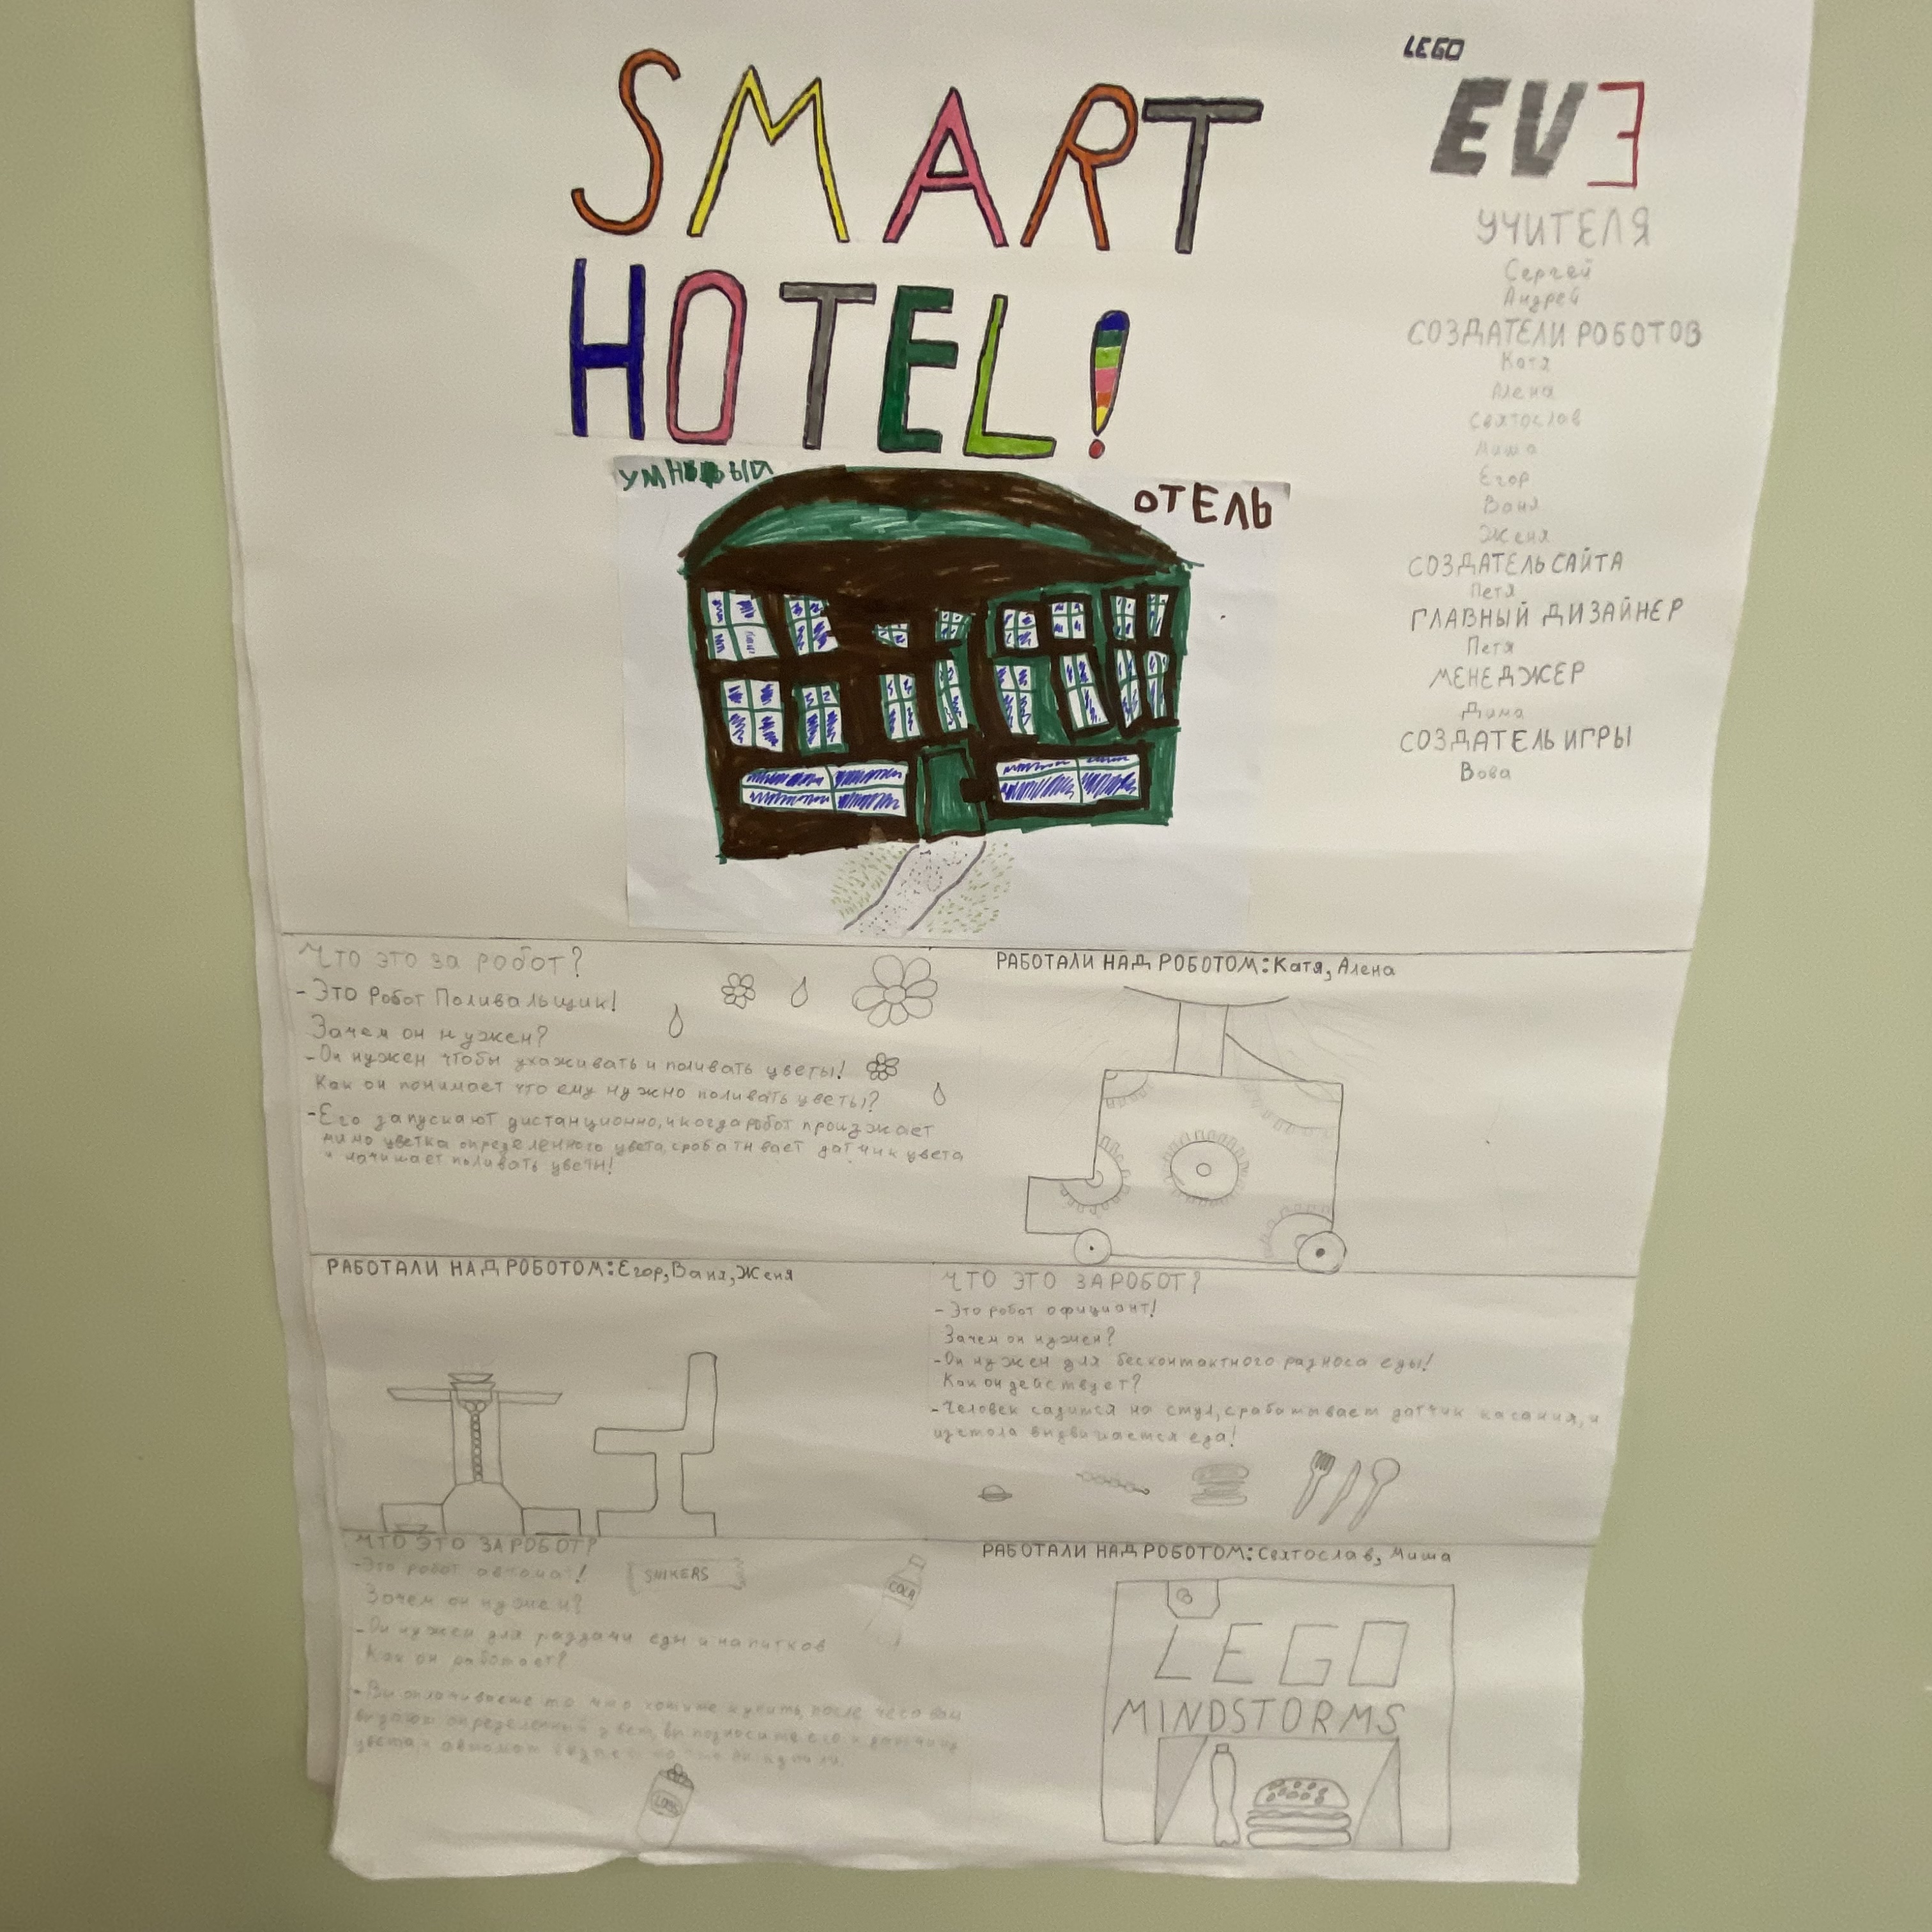 SMART
HOTEL!
УМНЫЙ
ОТЕЛЬ
LEGO
EV3
УЧИТЕЛЯ
Сергей
Андрей
СОЗДАТЕЛИ РОБОТОВ
Катя
Алена
Святослав
Миша
Егор
Ваня
Женя
СОЗДАТЕЛЬ САЙТА
Петя
ГЛАВНЫЙ ДИЗАЙНЕР
Петя
МЕНЕДЖЕР
Дима
СОЗДАТЕЛЬ ИГРЫ
Вова
Что это за робот?
- Это Робот Поливальщик!
Зачем он нужен?
- Он нужен чтобы ухаживать и поливать цветы!
Как он понимает что ему нужно поливать цветы?
- Его запускают дистанционно, и когда робот произжает
мимо цветка определенного цвета, сробатывает датчик цвета
и начинает поливать цветы!
РАБОТАЛИ НАД РОБОТОМ: Катя, Алена
РАБОТАЛИ НАД РОБОТОМ: Егор, Ваня, Женя
ЧТО ЭТО ЗА РОБОТ?
- Это робот официант!
Зачем он нужен?
- Он нужен для бесконтактного разноса еды!
Как он действует?
- Человек садится на стул, срабатывает датчик касания, и
из стола выдвигается еда!
ЧТО ЭТО ЗА РОБОТ?
- Это робот автомат!
Зачем он нужен?
- Он нужен для раздачи еды и напитков
Как он работает?
- Вы оплачиваете то что хотите купить, после чего вам
выдают определенный цвет, вы подносите его к датчику
цвета, и автомат что вы купили.
SNIKERS
COLA
РАБОТАЛИ НАД РОБОТОМ: Святослав, Миша
LEGO
MINDSTORMS